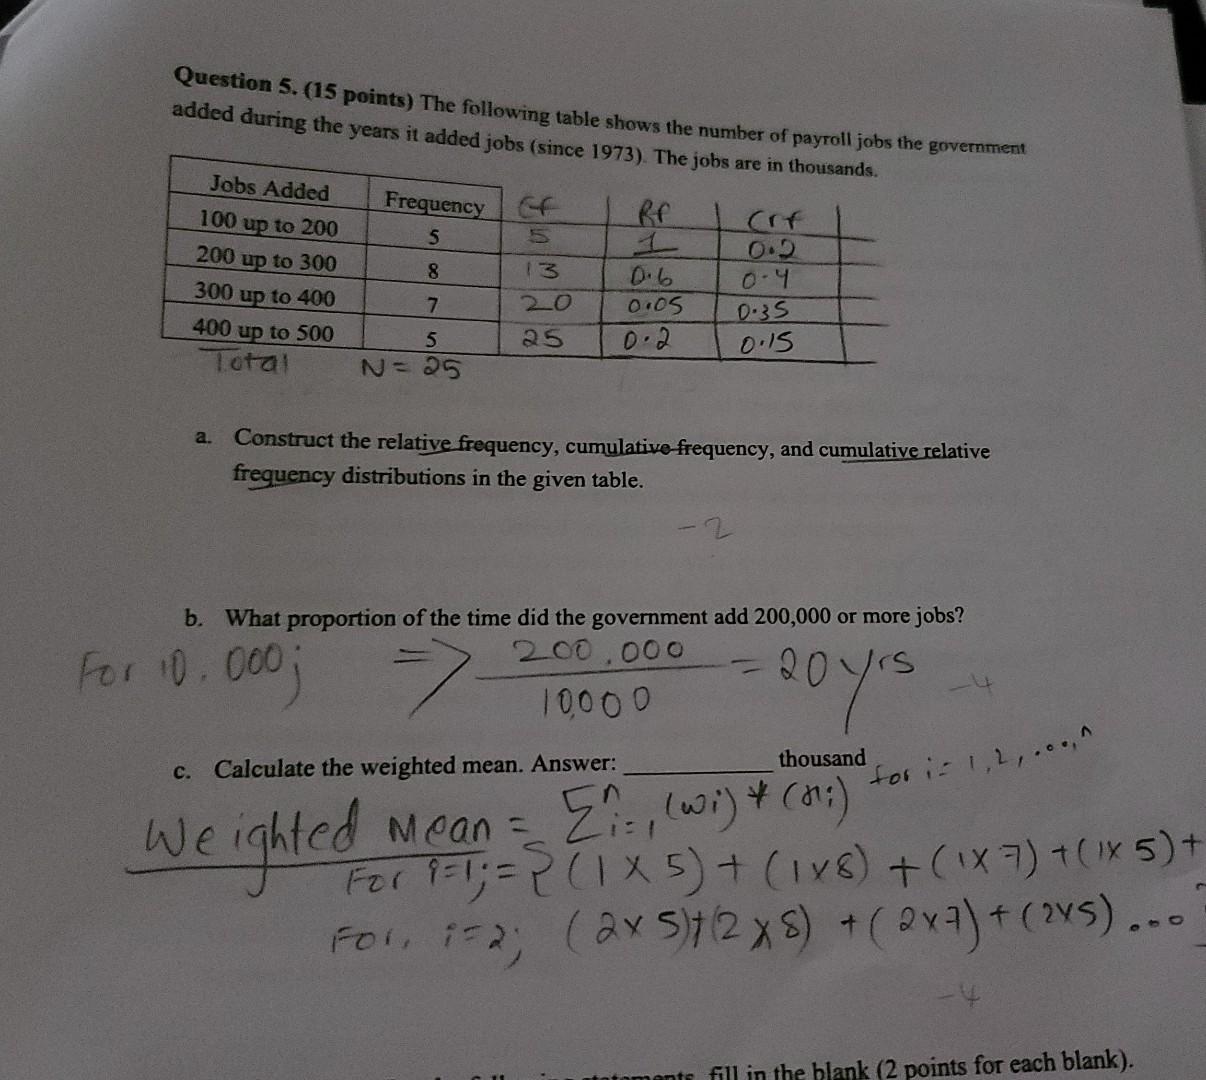 Question 5. (15 points) The following table shows the number of payroll jobs the government
added during the years it added jobs (since 1973). The jobs are in thousands.
Jobs Added Frequency Cf Rf Crf
100 up to 200 5 5 1 0.2
200 up to 300 8 13 0.6 0.4
300 up to 400 7 20 0.05 0.35
400 up to 500 5 25 0.2 0.15
Total N = 25
a. Construct the relative frequency, cumulative frequency, and cumulative relative
frequency distributions in the given table.
-2
b. What proportion of the time did the government add 200,000 or more jobs?
For 10.000; => 200.000 / 10,000 = 20 yrs
-4
c. Calculate the weighted mean. Answer: __________ thousand
for i = 1, 2, ...., n
Weighted Mean = Σⁿi=1 (wi) * (xi)
For i=1; = { (1 x 5) + (1x8) + (1x7) + (1x 5) +
For, i=2; (2x 5)+(2 x 8) + (2x7) + (2x5) ...
-4
fill in the blank (2 points for each blank).